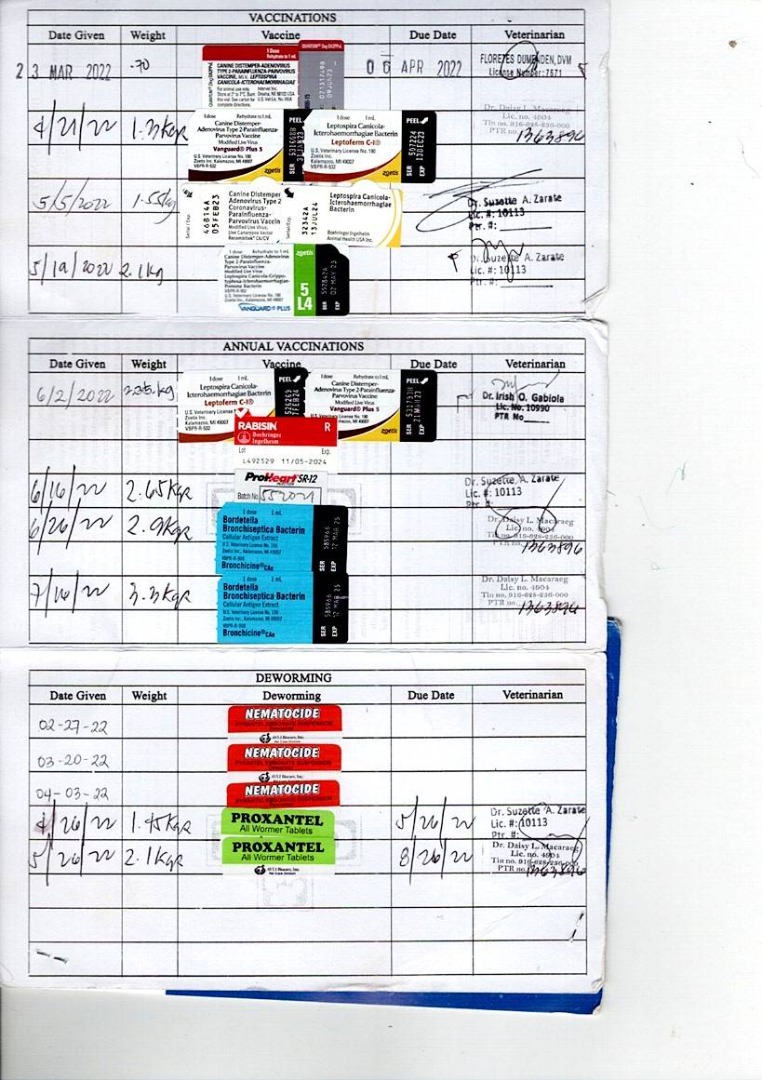 VACCINATIONS
Date Given Weight Vaccine Due Date Veterinarian
2 3 MAR 2022 .70
1 Dose
Rehydrate to 1 mL
CANINE DISTEMPER-ADENOVIRUS
TYPE 2-PARAINFLUENZA-PARVOVIRUS
VACCINE, MLV, LEPTOSPIRA
CANICOLA-ICTEROHAEMORRHAGIAE
0 6 APR 2022
FLORETES DUMENDEN, DVM
License Number: 7671
4/21/22 1.3Kgr
1 dose Rehydrate to 1 mL
Canine Distemper-
Adenovirus Type 2-Parainfluenza-
Parvovirus Vaccine
Modified Live Virus
Vanguard® Plus 5
U.S. Veterinary License No. 190
Zoetis Inc.
Kalamazoo, MI 49007
zoetis
PEEL
1 dose 1 mL
Leptospira Canicola-
Icterohaemorrhagiae Bacterin
Leptoferm C-I®
U.S. Veterinary License No. 190
Zoetis Inc.
Kalamazoo, MI 49007
zoetis
PEEL
SER 507224
EXP 17DEC23
Dr. Daisy L. Macaraeg
Lic. no. 4904
PTR no. 1363896
5/5/2022 1.55kg
46B14A
05FEB23
Canine Distemper
Adenovirus Type 2
Coronavirus-
Parainfluenza-
Parvovirus Vaccin
Modified Live Virus,
Live Canarypox Vector
Recombitek® C6/CV
32342A
13JUL24
Leptospira Canicola-
Icterohaemorrhagiae
Bacterin
Boehringer Ingelheim
Animal Health USA Inc.
Dr. Suzette A. Zarate
Lic. #: 10113
Ptr. #:
5/19/2022 2.1kg
1 dose Rehydrate to 1 mL
Canine Distemper-Adenovirus
Type 2-Parainfluenza-
Parvovirus Vaccine
Modified Live Virus
Leptospira Canicola-Grippo-
typhosa-Icterohaemorrhagiae-
Pomona Bacterin
U.S. Veterinary License No. 190
Zoetis Inc., Kalamazoo, MI 49007
VANGUARD® PLUS
zoetis
5
L4
SER
EXP 02 MAY 23
Dr. Suzette A. Zarate
Lic. #: 10113
Ptr. #:
ANNUAL VACCINATIONS
Date Given Weight Vaccine Due Date Veterinarian
6/2/2022
1 dose 1 mL
Leptospira Canicola-
Icterohaemorrhagiae Bacterin
Leptoferm C-I®
U.S. Veterinary License No. 190
Zoetis Inc.
Kalamazoo, MI 49007
PEEL
1 dose Rehydrate to 1 mL
Canine Distemper-
Adenovirus Type 2-Parainfluenza-
Parvovirus Vaccine
Modified Live Virus
Vanguard® Plus 5
U.S. Veterinary License No. 190
Zoetis Inc.
Kalamazoo, MI 49007
zoetis
PEEL
Dr. Irish O. Gabiola
Lic. No. 10990
PTR No
RABISIN R
Boehringer
Ingelheim
Lot Exp.
L492529 11/05-2024
6/16/22 2.65Kgr
ProHeart® SR-12
Batch No. 552021
Dr. Suzette A. Zarate
Lic. #: 10113
Ptr. #:
6/26/22 2.9Kgr
Bordetella
Bronchiseptica Bacterin
Cellular Antigen Extract
U.S. Veterinary License No. 190
Zoetis Inc., Kalamazoo, MI 49007
Bronchicine® CAe
SER 585966
EXP 12 MAR 25
Dr. Daisy L. Macaraeg
Lic. no. 4904
Tin no. 916-628-236-000
PTR no. 1363896
7/16/22 3.3Kgr
1 dose 1 mL
Bordetella
Bronchiseptica Bacterin
Cellular Antigen Extract
U.S. Veterinary License No. 190
Zoetis Inc., Kalamazoo, MI 49007
Bronchicine® CAe
SER 585966
EXP 12 MAR 25
Dr. Daisy L. Macaraeg
Lic. no. 4904
Tin no. 916-628-236-000
PTR no. 1363896
DEWORMING
Date Given Weight Deworming Due Date Veterinarian
02-27-22 NEMATOCIDE
03-20-22 NEMATOCIDE
04-03-22 NEMATOCIDE
4/26/22 1.45Kgr PROXANTEL 5/26/22
All Wormer Tablets
Dr. Suzette A. Zarate
Lic. #: 10113
Ptr. #:
5/26/22 2.1Kgr PROXANTEL 8/26/22
All Wormer Tablets
Dr. Daisy L. Macaraeg
Lic. no. 4904
Tin no. 916-628-236-000
PTR no. 1363896